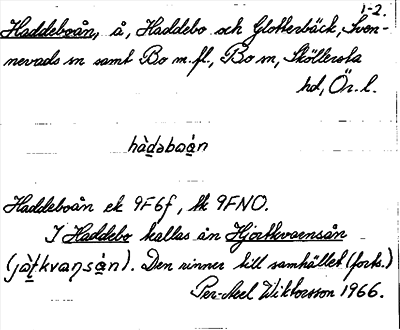 1-2.
Haddeboån, å, Haddebo och Glotterbäck, Sven-
nevads sn samt Bo m.fl., Bo sn, Sköllersta
hd, Ör. l.
hàdəboàn
Haddeboån ek 9F6f, tk 9FNO.
I Haddebo kallas ån Hjortkvarnsån
(jo̱ʈkvaɳsa̱n). Den rinner till samhället (forts.)
Per-Axel Wiktorsson 1966.